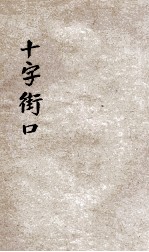 十字街口